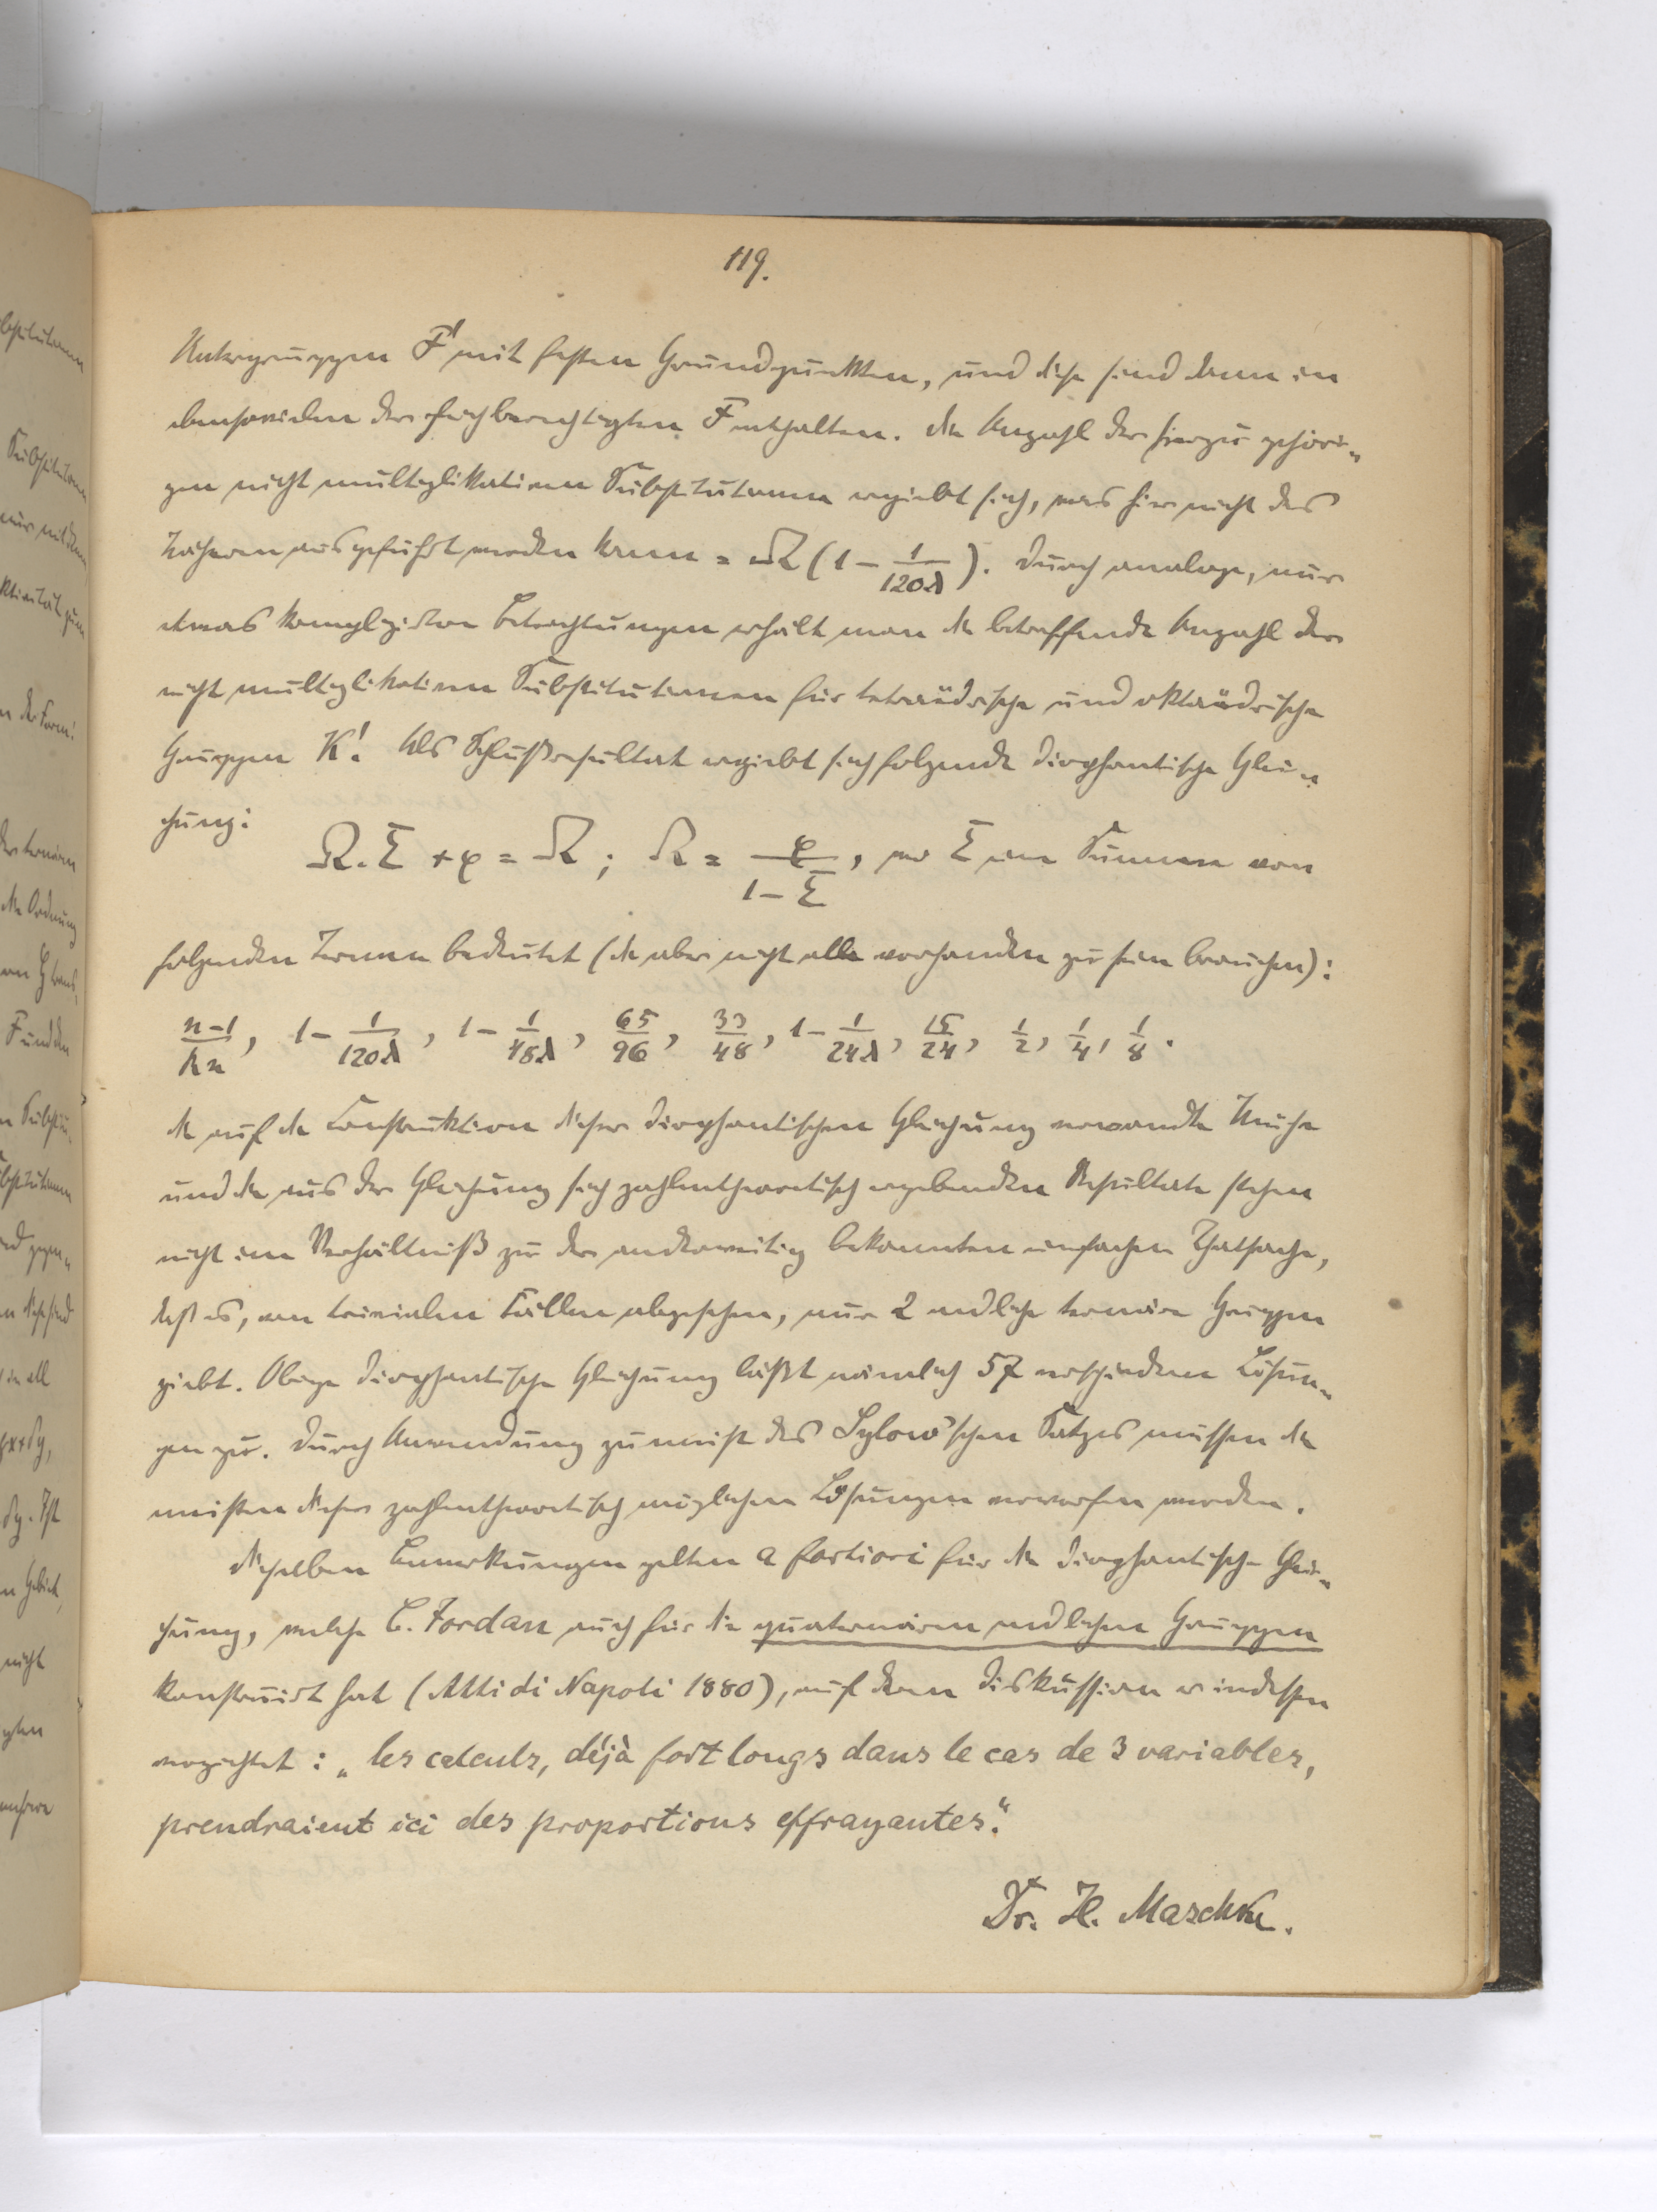 119.
Untergruppen F' mit festen Grundpunkten, und diese sind dann in
ebensovielen der gleichberechtigten F enthalten. Die Anzahl der hierzu gehöri-
gen nicht multiplikativen Substitutionen ergiebt sich, was hier nicht des
Näheren ausgeführt werden kann = Ω(1 − 1/120λ). Durch analoge, nur
etwas kompliziertere Betrachtungen erhält man die betreffende Anzahl der
nicht multiplikativen Substitutionen für tetraëdrische und oktaëdrische
Gruppen K'. Als Schlußresultat ergiebt sich folgende diophantische Glei-
chung:
Ω.Σ + φ = Ω; Ω = φ/(1−Σ), wo Σ eine Summe von
folgenden Termen bedeutet (die aber nicht alle vorhanden zu sein brauchen):
(n−1)/kn, 1 − 1/120λ, 1 − 1/48λ, 65/96, 33/48, 1 − 1/24λ, 15/24, 1/2, 1/4, 1/8.
Die auf die Construktion dieser diophantischen Gleichung verwandte Mühe
und die aus der Gleichung sich zahlentheoretisch ergebenden Resultate stehen
nicht im Verhältniß zu der anderweitig bekannten einfachen Thatsache,
daß es, von trivialen Fällen abgesehen, nur 2 endliche ternäre Gruppen
giebt. Obige diophantische Gleichung läßt nämlich 57 verschiedene Lösun-
gen zu. Durch Anwendung zumeist des Sylow'schen Satzes müssen die
meisten dieser zahlentheoretisch möglichen Lösungen verworfen werden.
Dieselben Bemerkungen gelten a fortiori für die diophantische Glei-
chung, welche C. Jordan auch für die quaternären endlichen Gruppen
konstruirt hat (Atti di Napoli 1880), auf deren Diskussion er indessen
verzichtet: „les calculs, déjà fort longs dans le cas de 3 variables,
prendraient ici des proportions effrayantes."
Dr. H. Maschke.